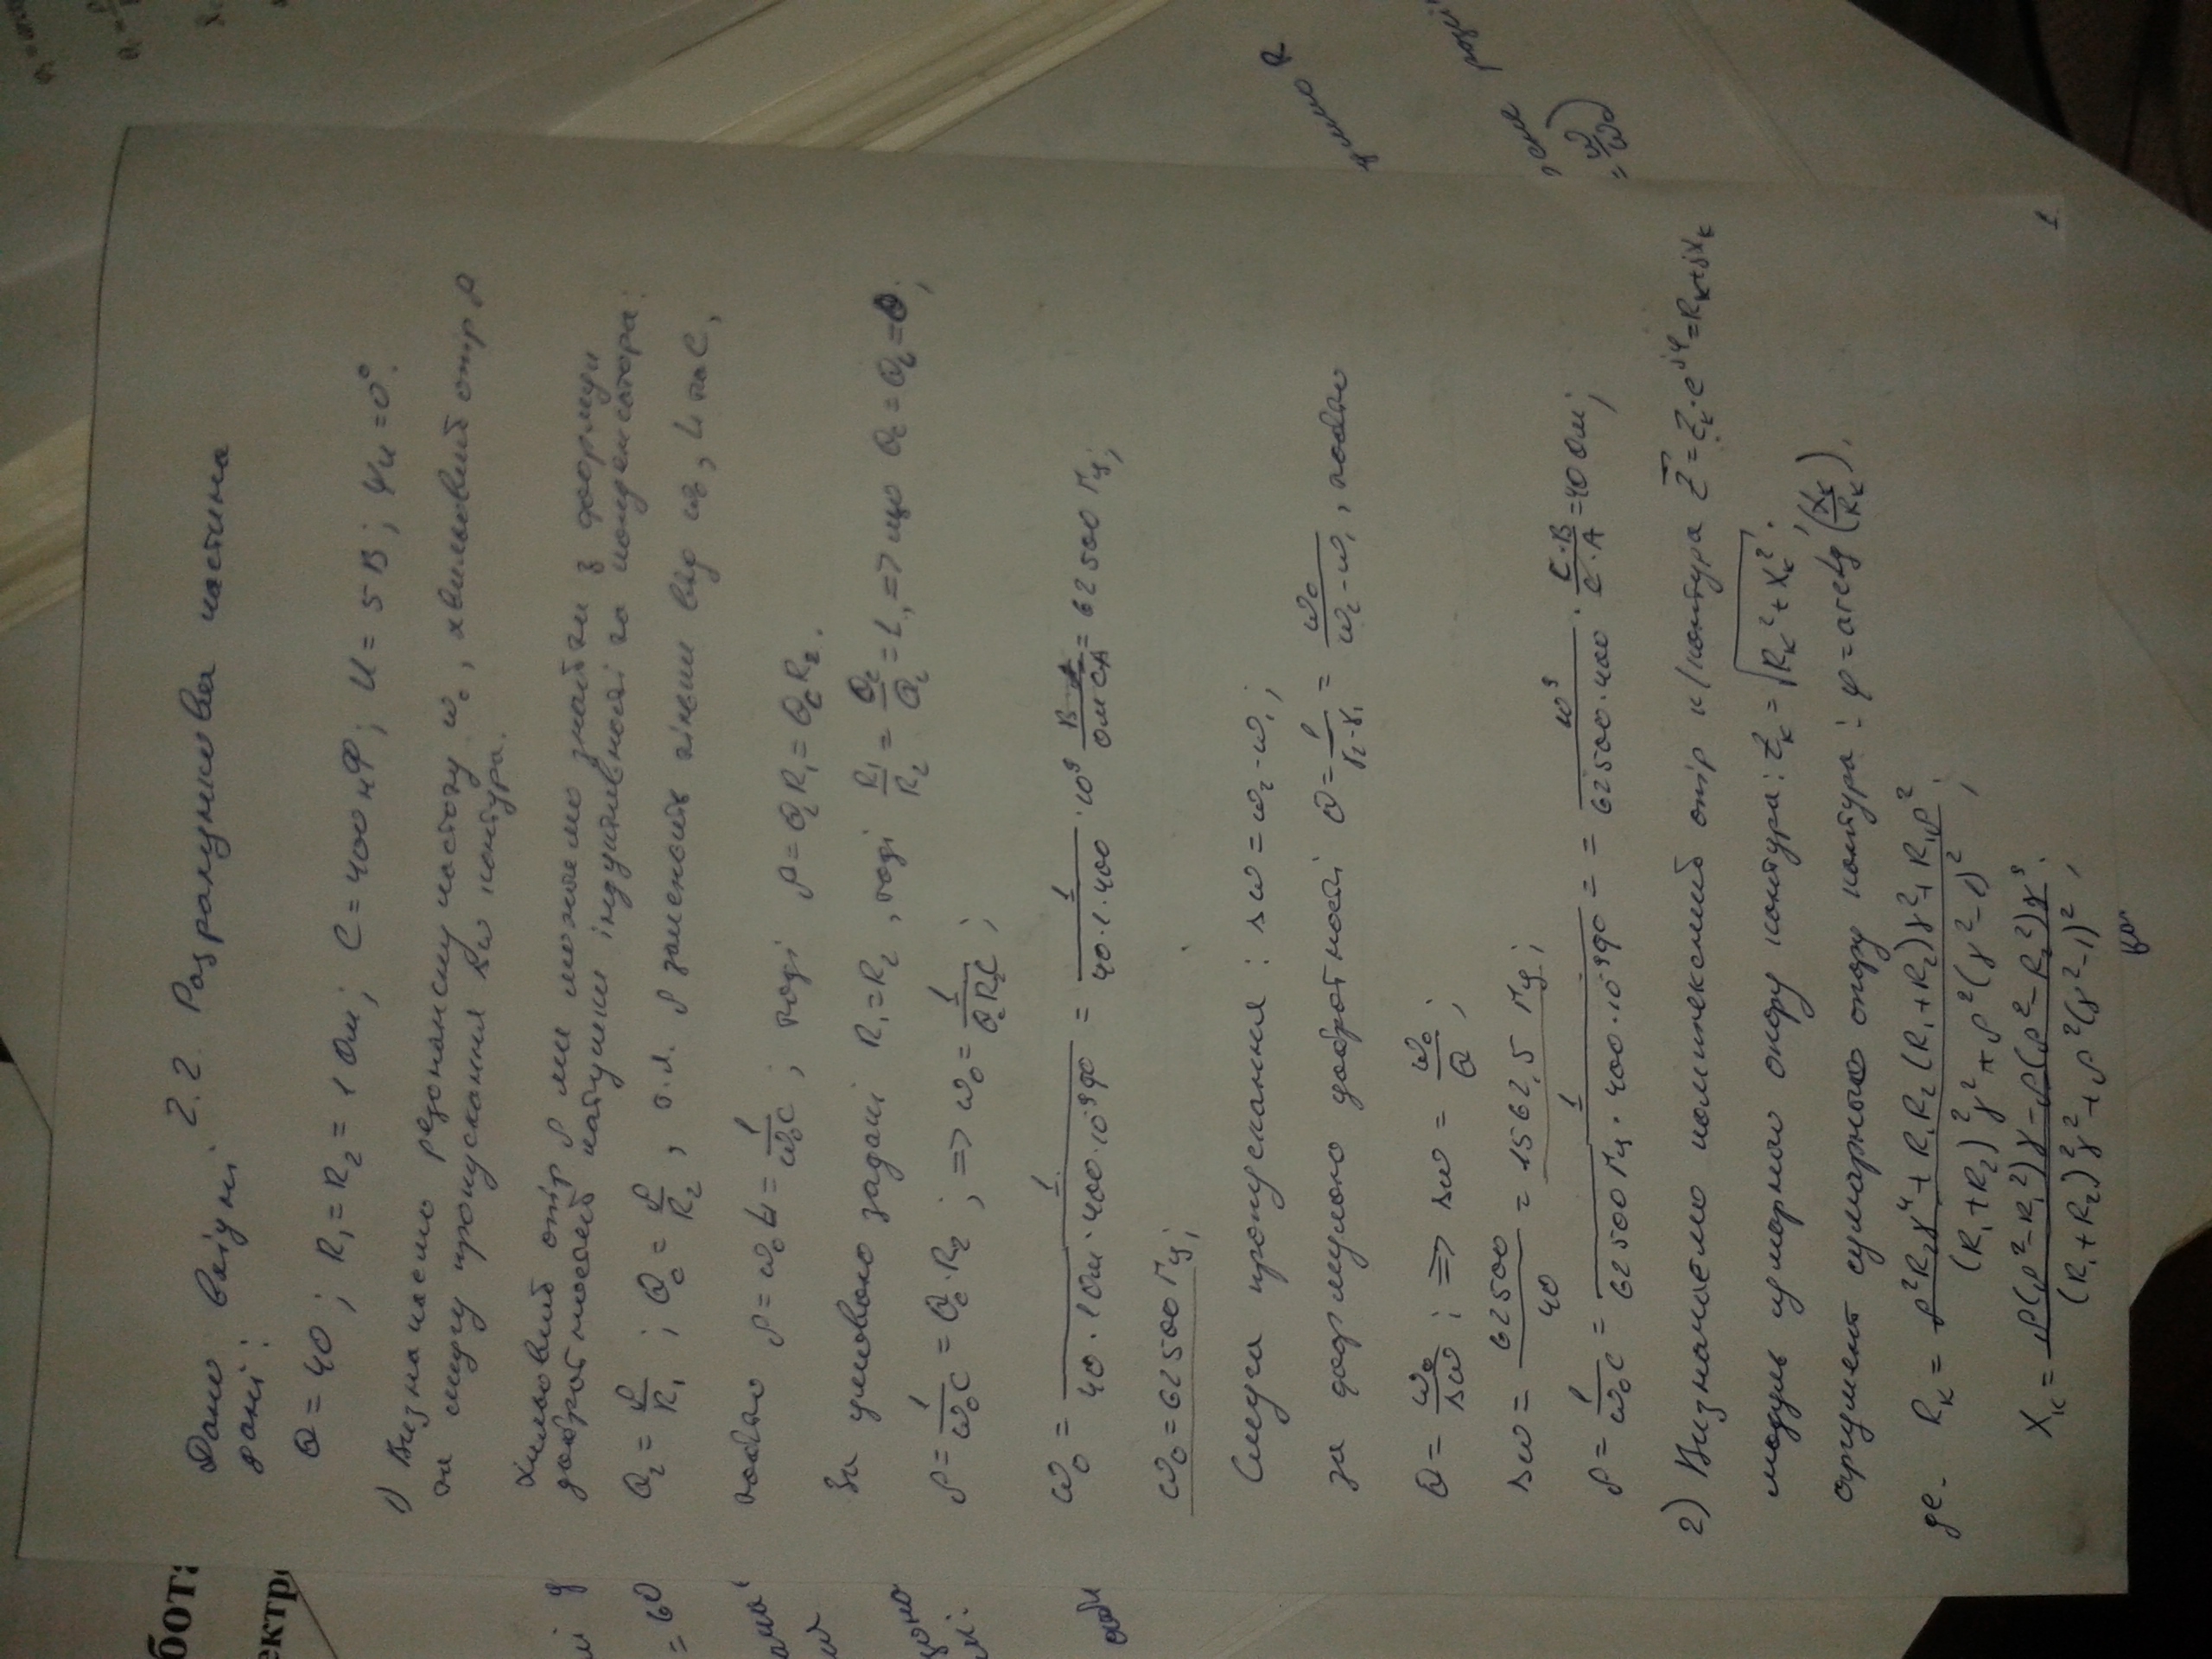 2.2. Розрахункова частина
Дано вхідні
дані:
Q = 40; R₁ = R₂ = 1 Ом; C = 400 нФ; U = 5 В; ψu = 0°.
1) Визначаємо резонансну частоту ω₀, хвильовий опір ρ
та смугу пропускання Δω контура.
Хвильовий опір ρ ми можемо знайти з формули
добротностей катушки індуктивності та конденсатора:
Q_L = ρ/R₁ ; Q_C = ρ/R₂ , т.я. ρ залежить тільки від ω₀, L та C,
тобто ρ = ω₀L = 1/(ω₀C) ; тоді ρ = Q_L R₁ = Q_C R₂.
За умовою задачі R₁ = R₂ , тоді R₁/R₂ = Q_C/Q_L = 1, => що Q_C = Q_L = Q;
ρ = 1/(ω₀C) = Q_C · R₂ ; => ω₀ = 1/(Q_C R₂ C) ;
ω₀ = 1/(40 · 1 Ом · 400 · 10⁻⁹ Ф) = 1/(40 · 1 · 400) · 10⁹ В А/(Ом С А) = 62500 Гц;
ω₀ = 62500 Гц;
Смуга пропускання : Δω = ω₂ - ω₁ ;
за формулою добротності Q = 1/(γ₂ - γ₁) = ω₀/(ω₂ - ω₁) , тобто
Q = ω₀/Δω ; => Δω = ω₀/Q ;
Δω = 62500/40 = 1562,5 Гц ;
ρ = 1/(ω₀C) = 1/(62500 Гц · 400 · 10⁻⁹ Ф) = = 10⁹/(62500 · 400) · С · В/(С · А) = 40 Ом;
2) Визначаємо комплексний опір к/контура Z = Z_к · e^(jφ) = R_к + jX_к
модуль сумарного опору контура: Z_к = √(R_к² + X_к²) ;
аргумент сумарного опору контура: φ = arctg (X_к/R_к).
де. R_к = (ρ²R₂γ⁴ + R₁R₂(R₁ + R₂)γ² + R₁ρ²)/((R₁ + R₂)²γ² + ρ²(γ² - 1)²) ;
X_к = (ρ(ρ² - R₁²)γ - ρ(ρ² - R₂²)γ³)/((R₁ + R₂)²γ² + ρ²(γ² - 1)²) ;
1
бота
ектр
= 60
= ω/ω₀)